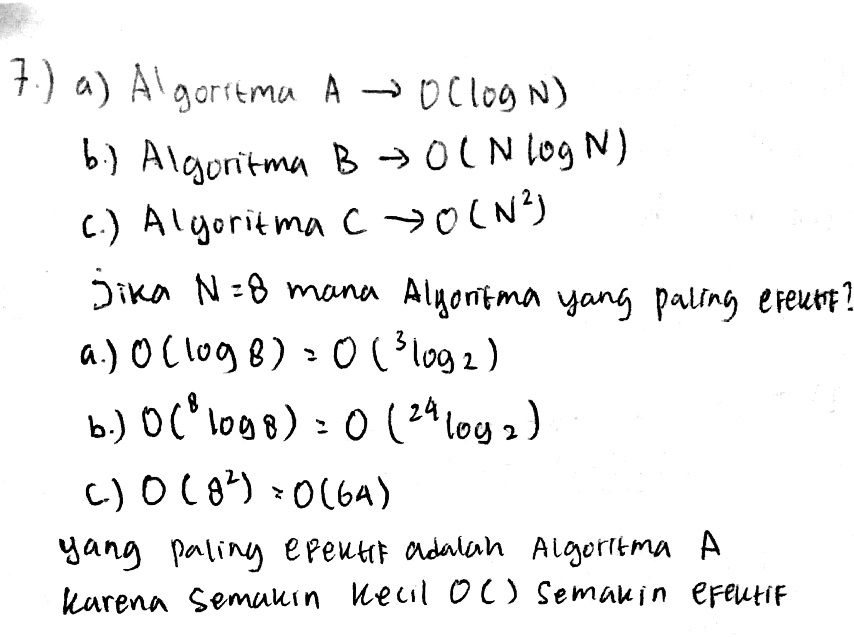 7.) a) Algoritma A → O(log N)
b.) Algoritma B → O(N log N)
c.) Algoritma C → O(N²)
Jika N=8 mana Algoritma yang paling efektif?
a.) O(log 8) = O(³log 2)
b.) O(⁸log 8) = O(²⁴log 2)
c.) O(8²) = O(64)
yang paling efektif adalah Algoritma A
karena semakin kecil O() semakin efektif